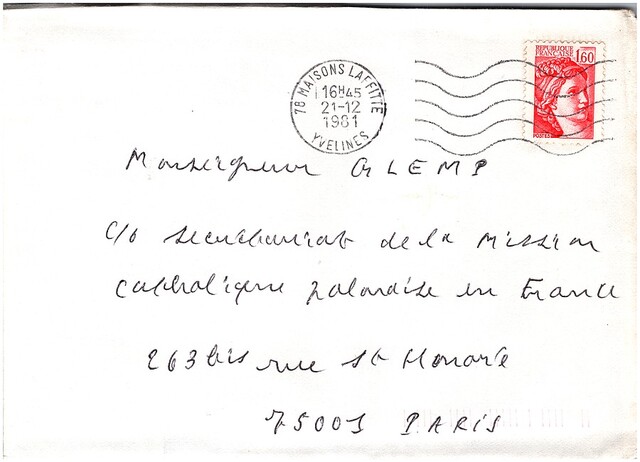 REPUBLIQUE
FRANCAISE
1,60
POSTES
78 MAISONS LAFFITTE
16H45
21-12
1981
YVELINES
Monseigneur GLEMP
c/o secretariat de la Mission
catholique polonaise en France
263 bis rue St Honoré
75001 PARIS